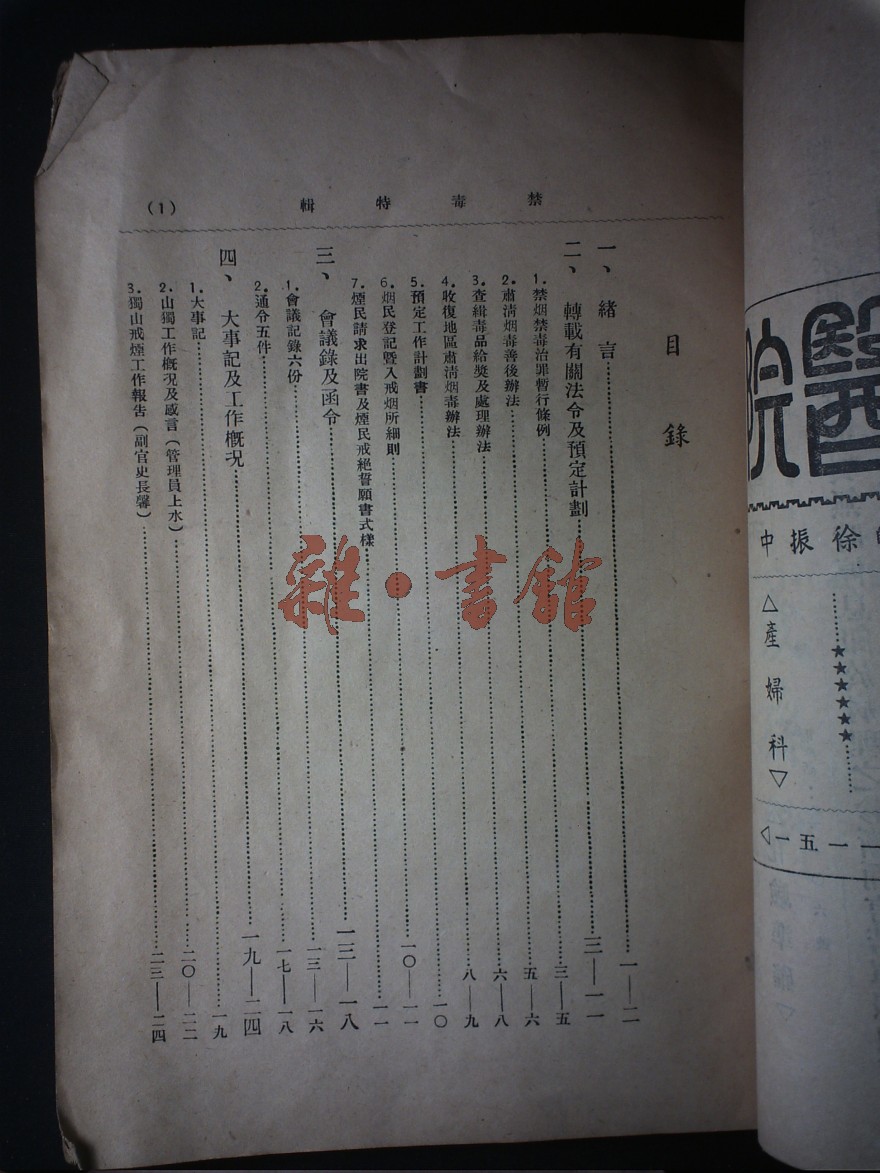 禁毒特輯
(1)
目錄
一、緒言……一—二
二、轉載有關法令及預定計劃……三—一一
1.禁烟禁毒治罪暫行條例……三—五
2.肅清烟毒善後辦法……五—六
3.查緝毒品給獎及處理辦法……六—八
4.收復地區肅清烟毒辦法……八—九
5.預定工作計劃書……一〇
6.烟民登記暨入戒烟所細則……一〇—一一
7.煙民請求出院書及煙民戒絕誓願書式樣……一一
三、會議錄及函令……一三—一八
1.會議記錄六份……一三—一六
2.通令五件……一七—一八
四、大事記及工作概況……一九—二四
1.大事記……一九
2.山獨工作概況及感言(管理員上水)……二〇—二二
3.獨山戒煙工作報告(副官史長馨)……二三—二四
雜·書館
醫院
徐振中
△產婦科▽
★★★★★